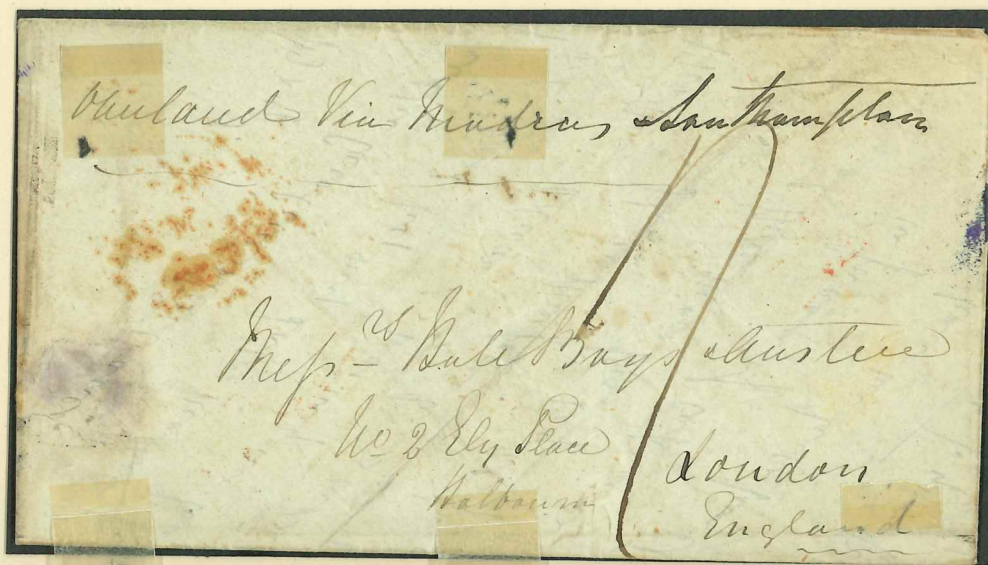 Overland Via Madras Southampton
Messrs Hale Boys & Austen
No 2 Ely Place
Holbourn
London
England